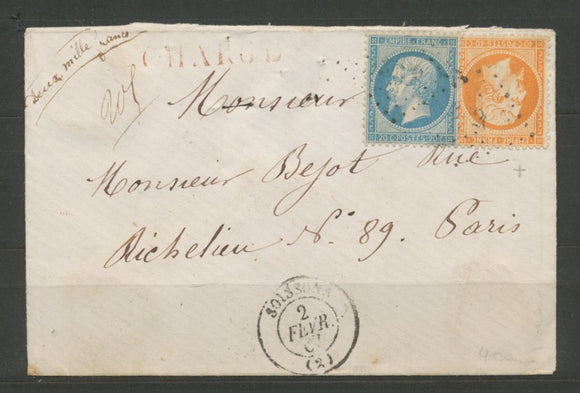 Deux mille francs
CHARGÉ
205
EMPIRE FRANC.
20 C. POSTES 20 C.
Monsieur
Monsieur Bejot Rue
Richelieu N° 89. Paris
SOISSONS
2
FEVR.
(2)